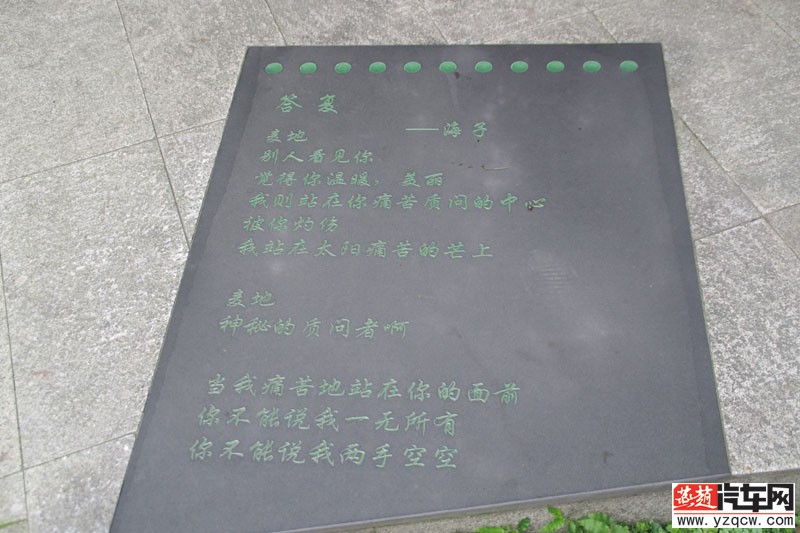 答复
——海子
麦地
别人看见你
觉得你温暖，美丽
我则站在你痛苦质问的中心
被你灼伤
我站在太阳痛苦的芒上
麦地
神秘的质问者啊
当我痛苦地站在你的面前
你不能说我一无所有
你不能说我两手空空
燕赵汽车网
www.yzqcw.com